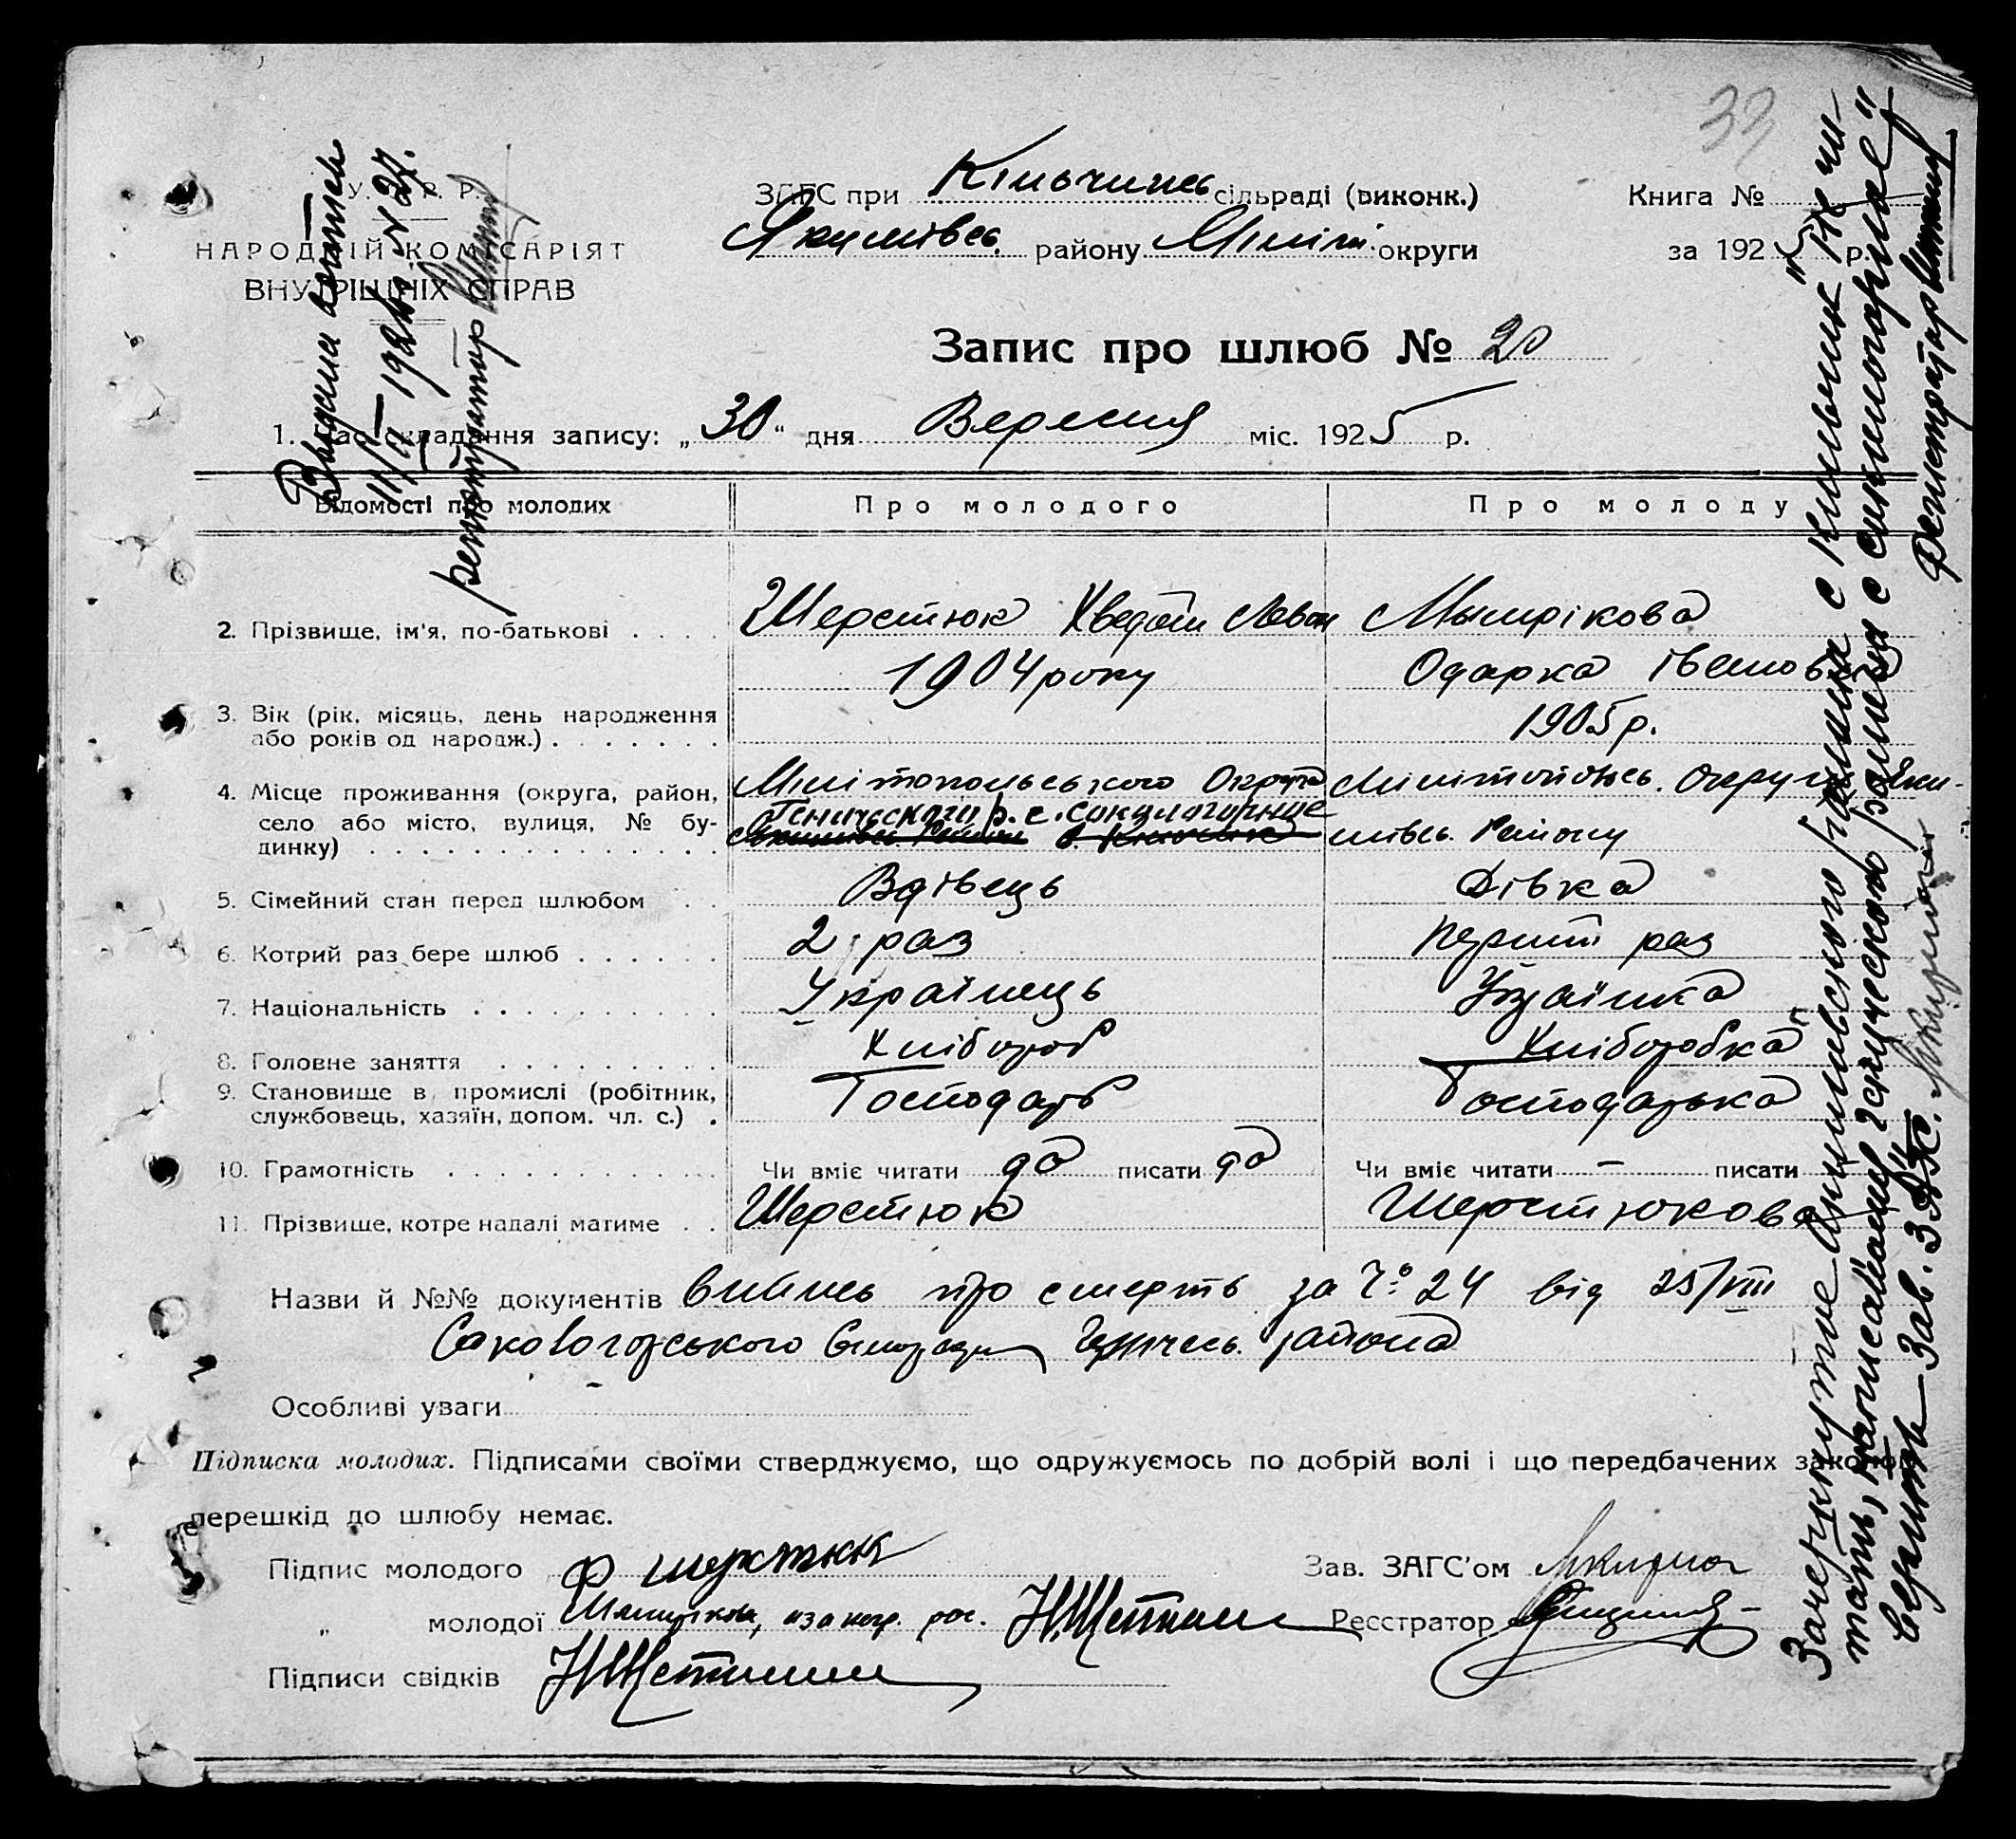 33
У. С. Р. Р.
НАРОДНІЙ КОМІСАРІЯТ
ВНУТРІШНІХ СПРАВ
11/IV 1926 N 27.
регистратор
ЗАГС при Кільчинсь сільраді (виконк.)
Якимівсь. району Меліт. округи
Книга №
за 1925 р.
Запис про шлюб № 20
1. Час складання запису: „30“ дня Вересня міс. 1925 р.
Відомості про молодих
Про молодого
Про молоду
2. Прізвище, ім'я, по-батькові . . . .
Шерстюк Хведот Леван
1904 року
Мышрікова
Одарка Іванов
3. Вік (рік, місяць, день народження
або років од народж.) . . . . . . .
1905 р.
4. Місце проживання (округа, район,
село або місто, вулиця, № бу-
динку) . . . . . . . . . . . . . .
Мелітопольського Округа
Генического р. с. Сокологорное
Мелітопольсь. Округи Яки-
мівсь. Району
5. Сімейний стан перед шлюбом . .
Вдівець
Дівка
6. Котрий раз бере шлюб . . . . . .
2 раз
Перший раз
7. Національність . . . . . . . . . .
Українець
Українка
8. Головне заняття . . . . . . . . .
Хлібороб
Хліборобка
9. Становище в промислі (робітник,
службовець, хазяїн, допом. чл. с.) .
Господарь
Господарька
10. Грамотність . . . . . . . . . . .
Чи вміє читати да писати да
Чи вміє читати – писати
11. Прізвище, котре надалі матиме . .
Шерстюк
Шерстюкова
Назви й №№ документів випись про смерть за № 24 від 25/VIII
Соковогорського Сельради Генічесь. района
Особливі уваги –
Підписка молодих. Підписами своїми стверджуємо, що одружуємось по добрій волі і що передбачених законом
перешкід до шлюбу немає.
Підпис молодого Ф Шерстюк
Зав. ЗАГС'ом
„ молодої
Реєстратор
Підписи свідків
Зачеркнутые "Якимівского району с Кильчик" не чи-
тать, написанный "Генического района с Сокологорное"
верить. Зав. ЗАГС.
Регистратор